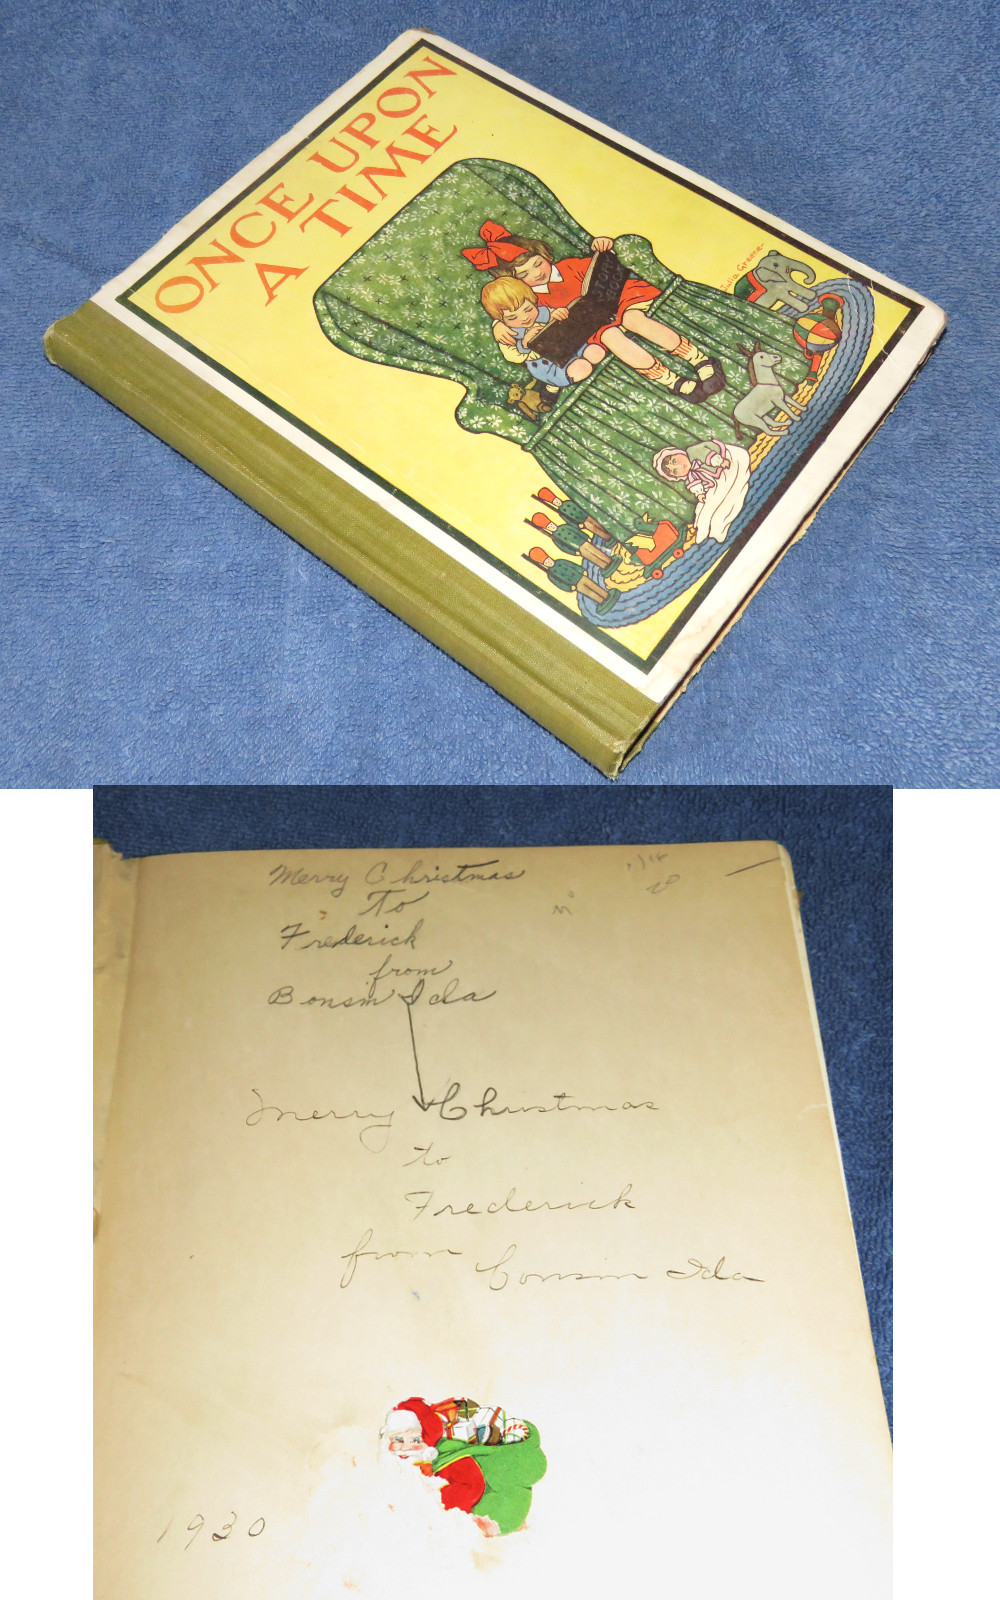 ONCE UPON
A TIME
STORY
BOOK
Julia Greene
Merry Christmas
To
Frederick
from
Bonsin Ida
Merry Christmas
to
Frederick
from Cousin Ida
1930